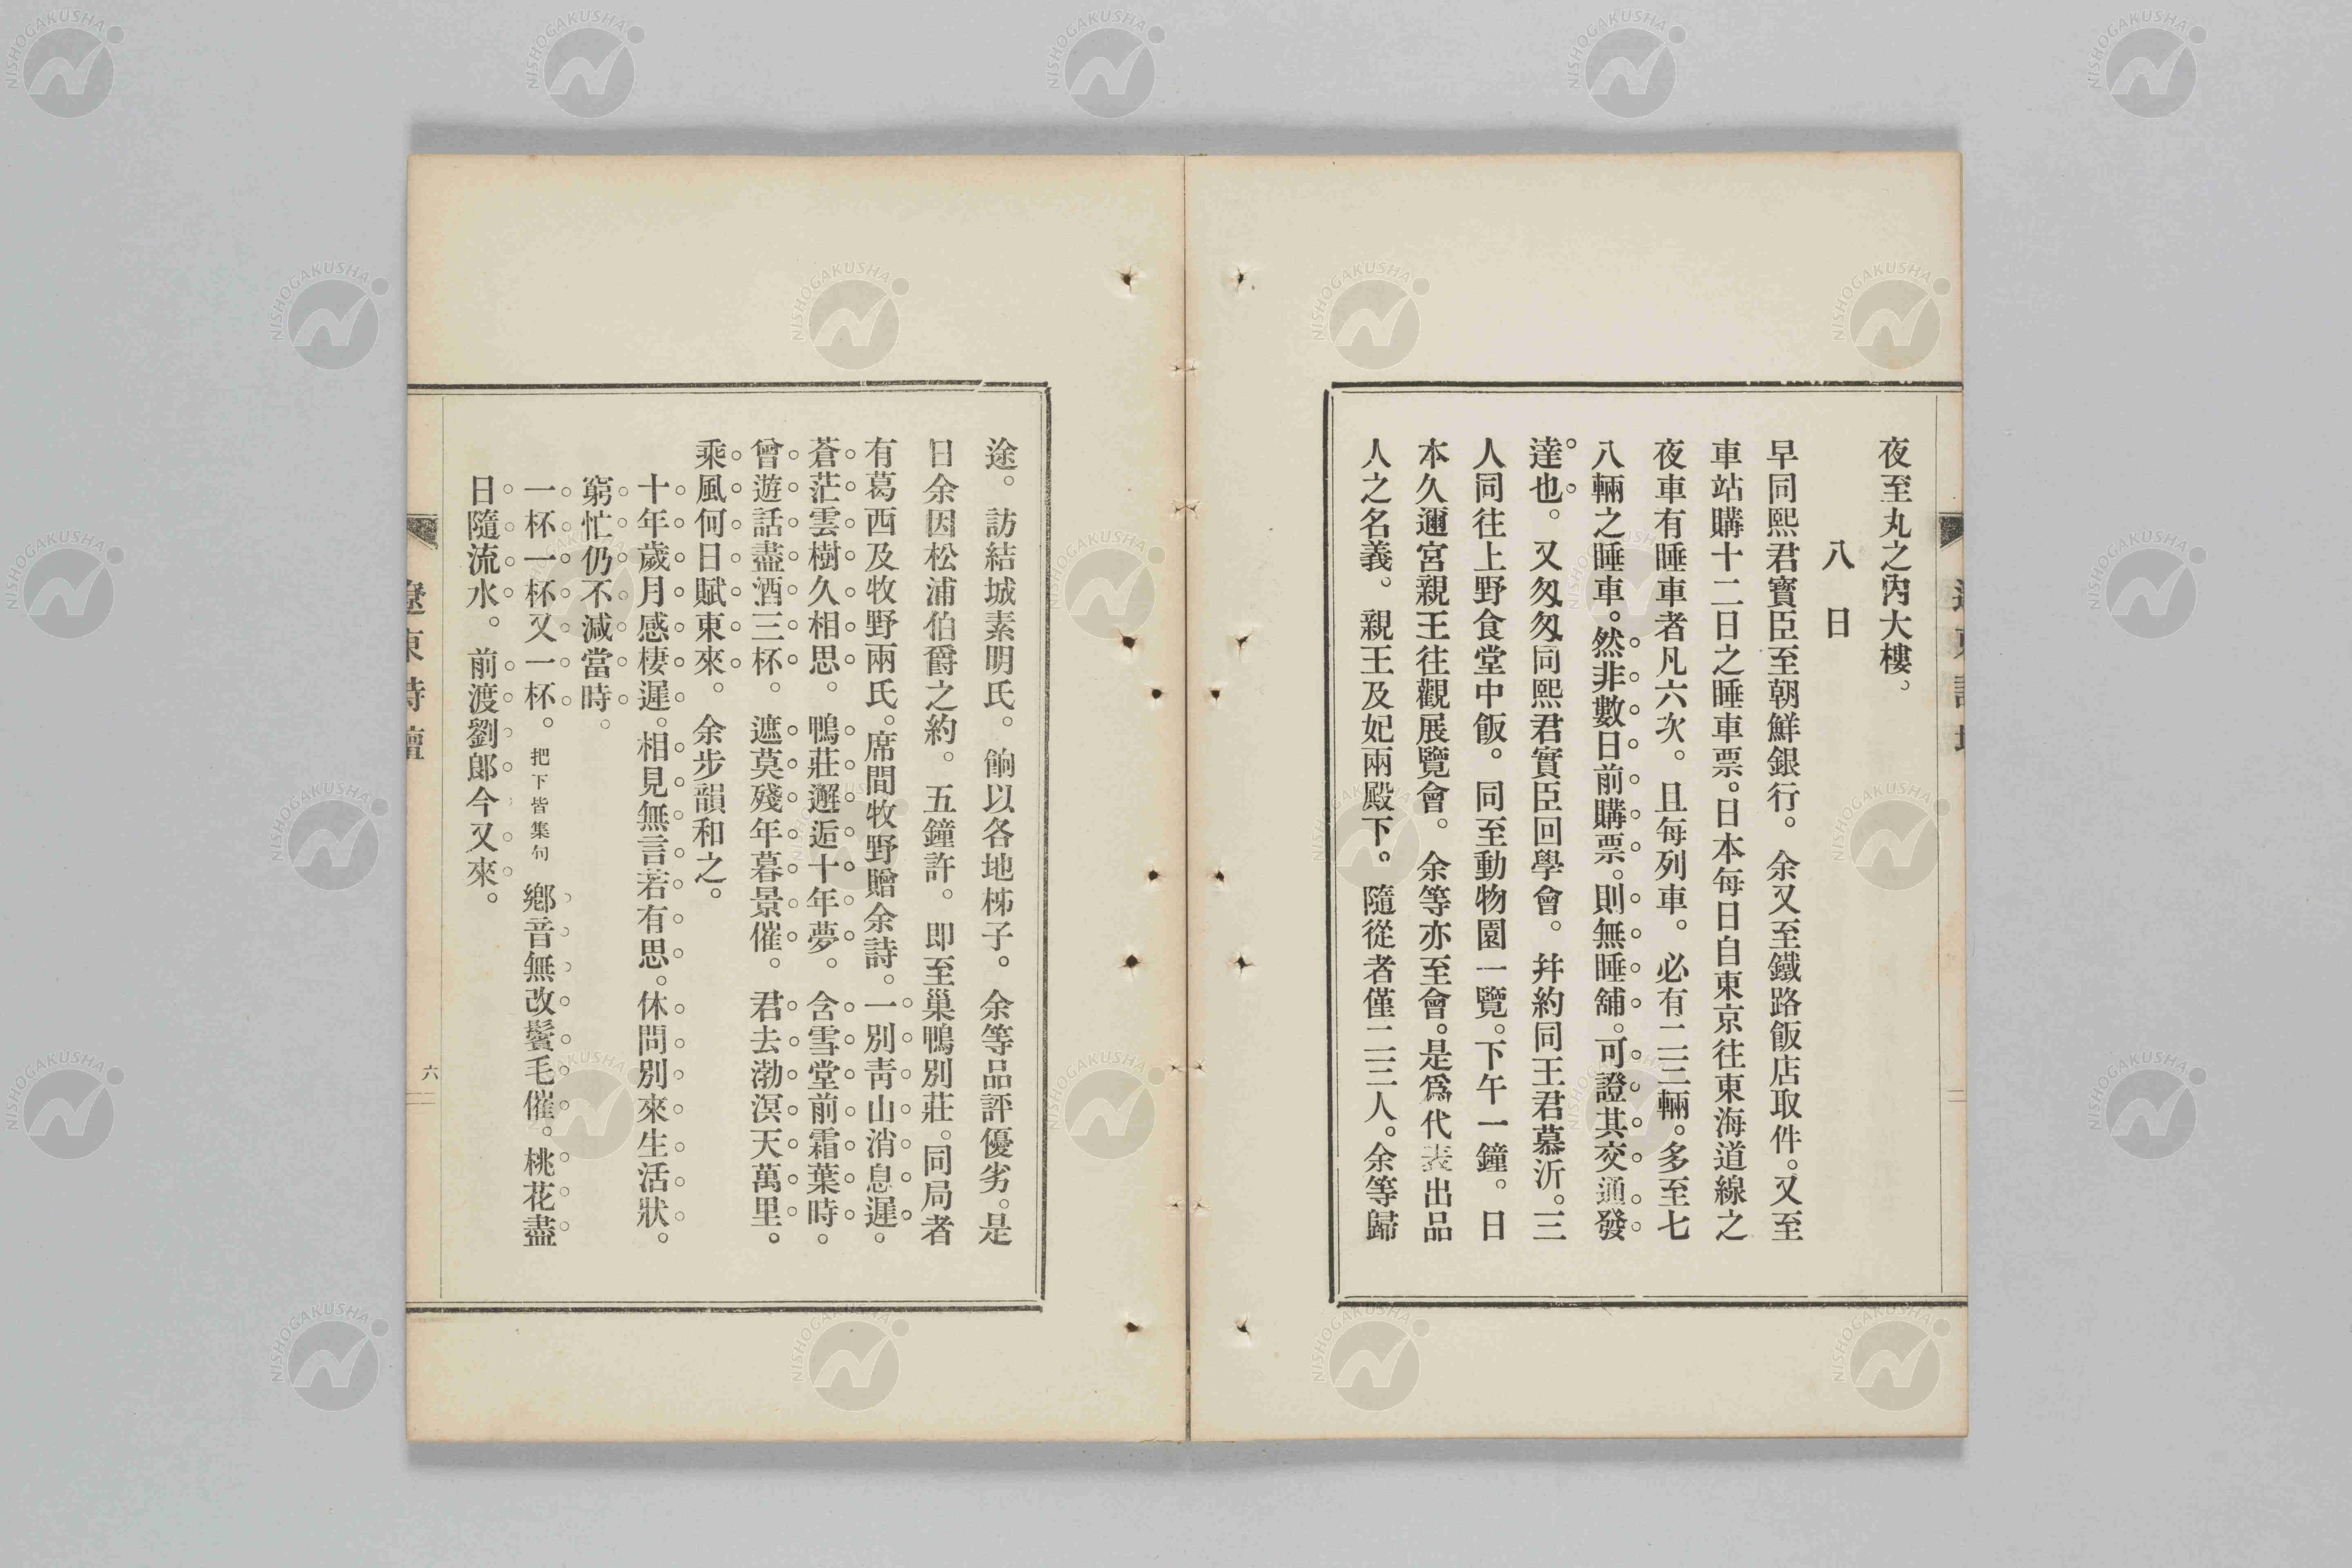 夜至丸之內大樓。
八日
早同熙君寶臣至朝鮮銀行。余又至鐵路飯店取件。又至
車站購十二日之睡車票。日本每日自東京往東海道線之
夜車有睡車者凡六次。且每列車。必有二三輛。多至七
八輛之睡車。然非數日前購票。則無睡舖。可證其交通發
達也。又匆匆同熙君寶臣回學會。并約同王君慕沂。三
人同往上野食堂中飯。同至動物園一覽。下午一鐘。日
本久邇宮親王往觀展覽會。余等亦至會。是爲代表出品
人之名義。親王及妃兩殿下。隨從者僅二三人。余等歸
途。訪結城素明氏。餉以各地柹子。余等品評優劣。是
日余因松浦伯爵之約。五鐘許。即至巢鴨別莊。同局者
有葛西及牧野兩氏。席間牧野贈余詩。一別靑山消息遲。
蒼茫雲樹久相思。鴨莊邂逅十年夢。含雪堂前霜葉時。
曾遊話盡酒三杯。遮莫殘年暮景催。君去渤溟天萬里。
乘風何日賦東來。余步韻和之。
十年歲月感棲遲。相見無言若有思。休問別來生活狀。
窮忙仍不減當時。
一杯一杯又一杯。把下皆集句 鄕音無改鬢毛催。桃花盡
日隨流水。前渡劉郞今又來。
遼東詩壇
六